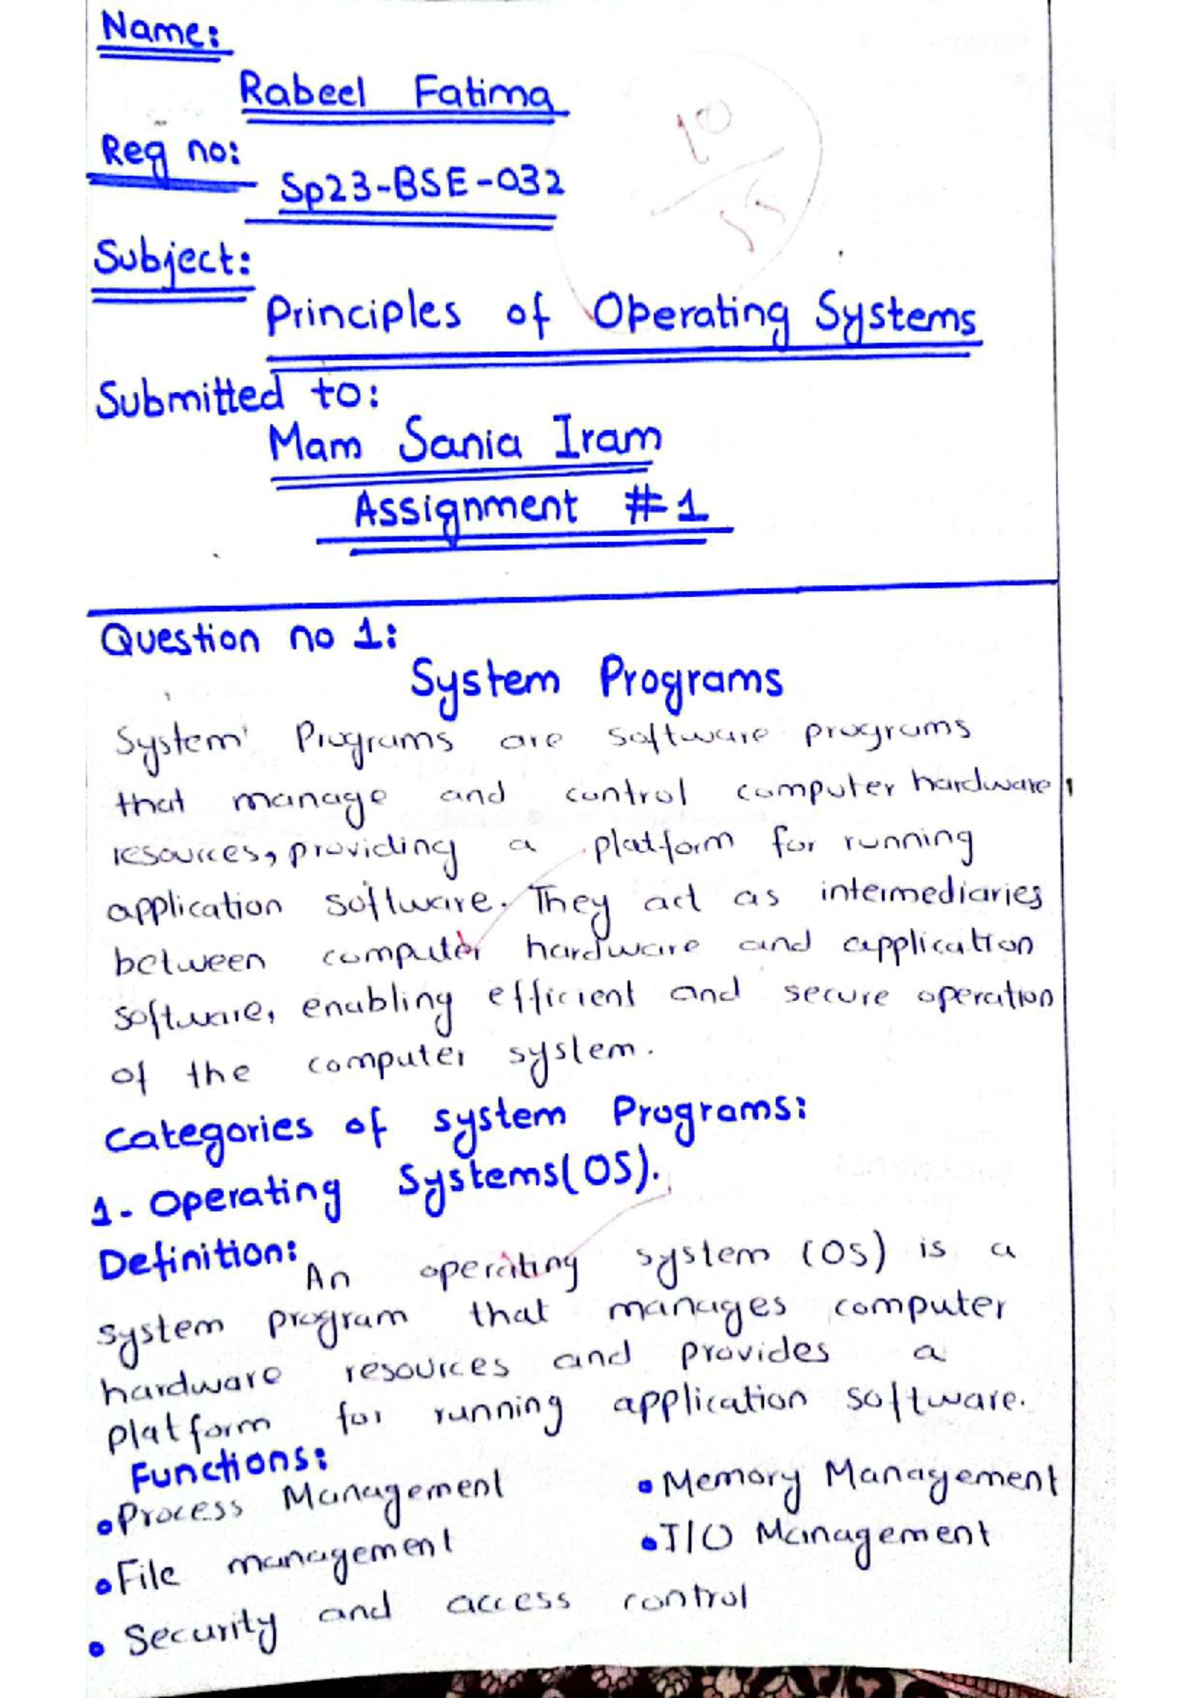 Name:
Rabeel Fatima
Reg no:
Sp23-BSE-032
10
15
Subject:
Principles of Operating Systems
Submitted to:
Mam Sania Iram
Assignment #1
Question no 1:
System Programs
System Programs are software programs
that manage and control computer hardware
resources, providing a platform for running
application software. They act as intermediaries
between computer hardware and application
software, enabling efficient and secure operation
of the computer system.
Categories of system Programs:
1- Operating Systems(OS).
Definition: An operating system (OS) is a
system program that manages computer
hardware resources and provides a
platform for running application software.
Functions:
• Process Management • Memory Management
• File management • I/O Management
• Security and access control